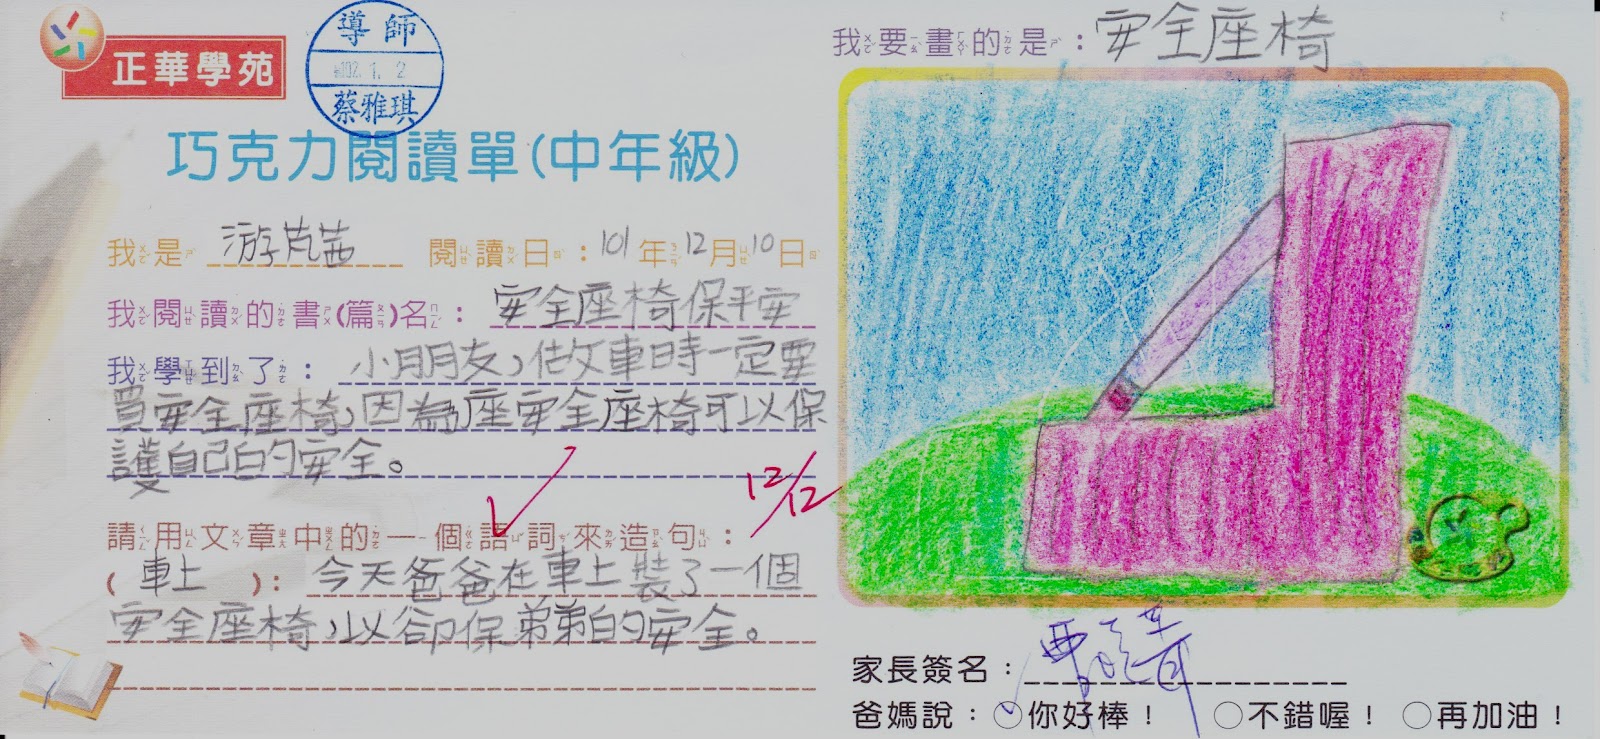 正華學苑
導師
102.1.2
蔡雅琪
巧克力閱讀單(中年級)
我是 游芃茜 閱讀日：101年12月10日
我閱讀的書(篇)名：安全座椅保平安
我學到了：小朋友，做車時一定要
買安全座椅，因為座安全座椅可以保
護自己的安全。
12/12
請用文章中的一個語詞來造句：
(車上)：今天爸爸在車上裝了一個
安全座椅，以卻保弟弟的安全。
我要畫的是：安全座椅
家長簽名：
爸媽說：○你好棒！ ○不錯喔！ ○再加油！